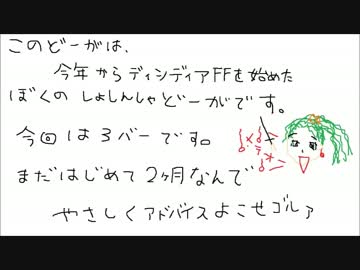 このどーがは、
今年からディンディアFFを始めた
ぼくのしょしんしゃどーがです。
今回は3バーです。
まだはじめて2ヶ月なんで
やさしくアドバイスよこせゴルァ